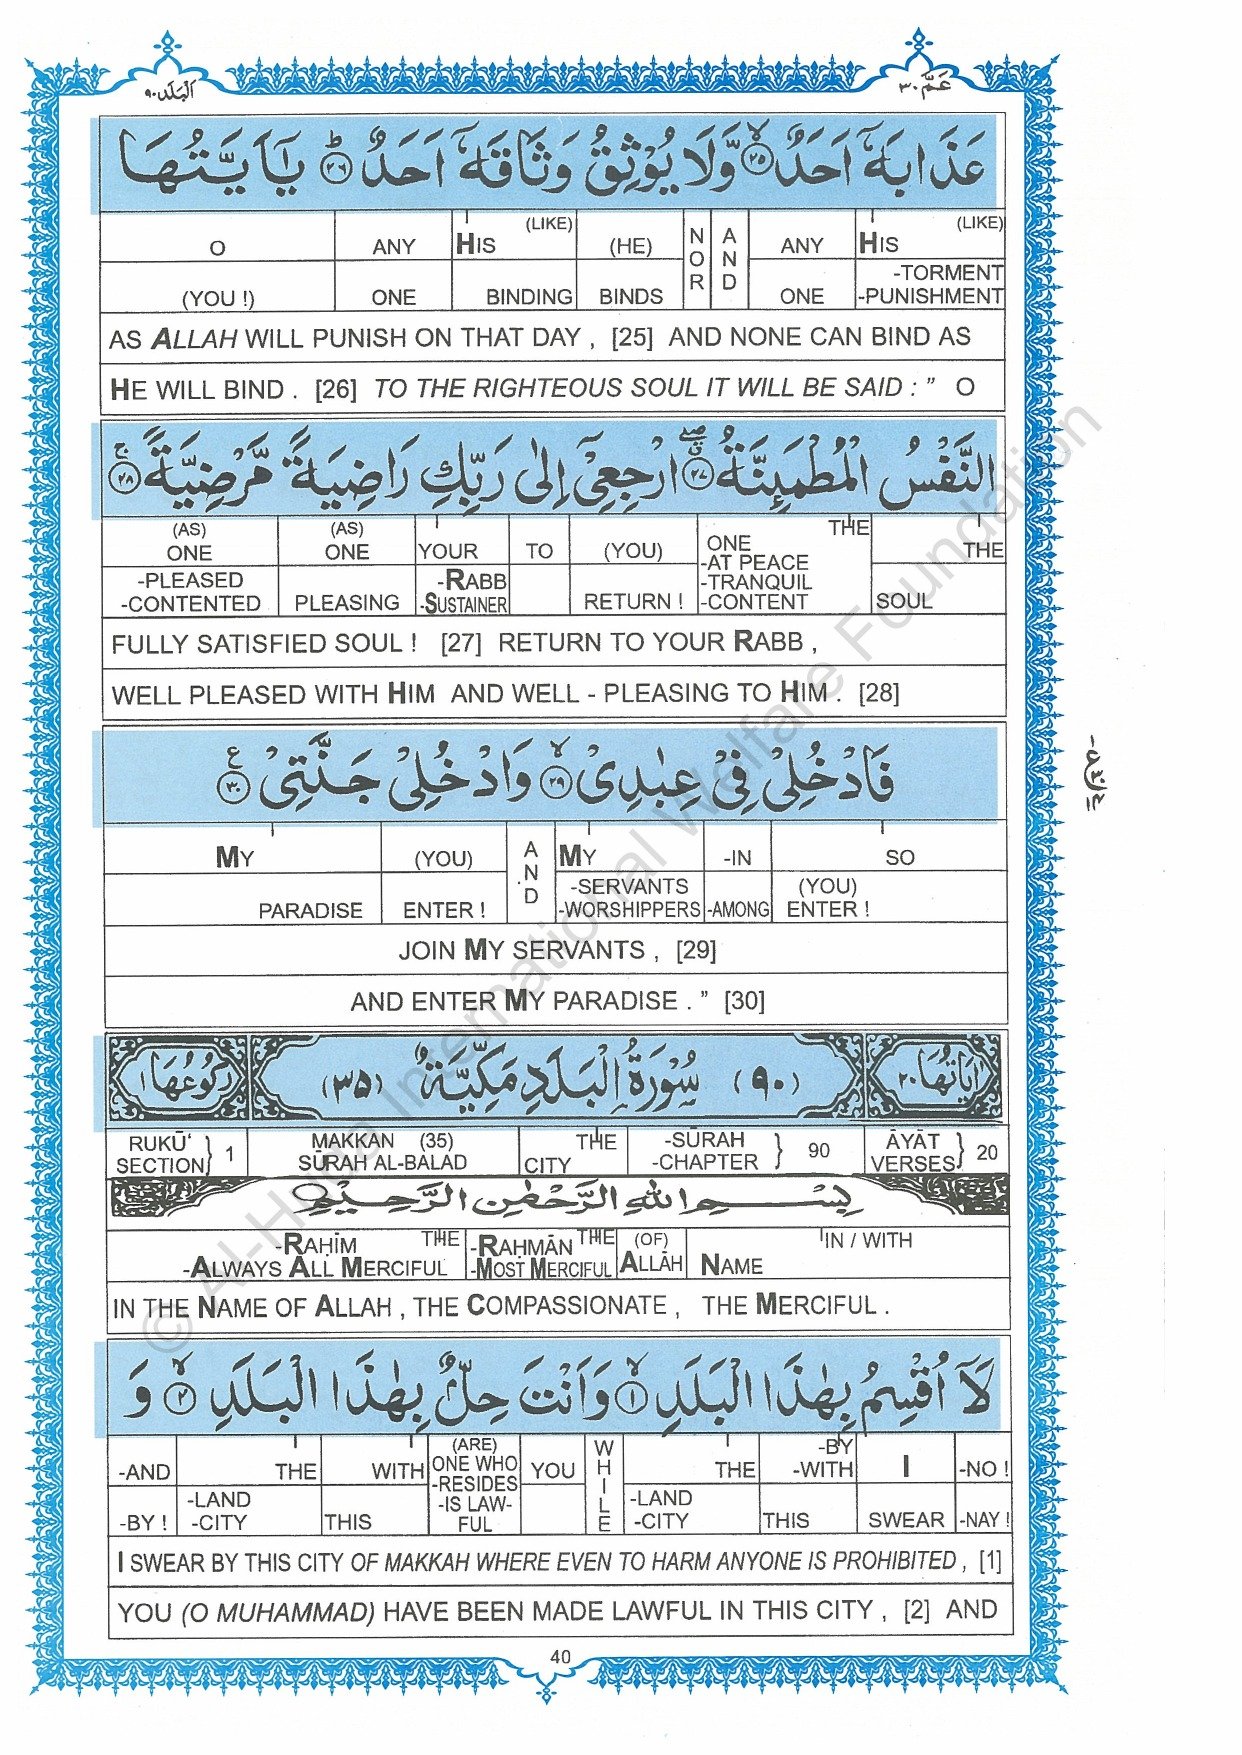 اَلْبَلَد ٩٠
عَمَّ ٣٠
عَذَابَهٗۤ اَحَدٌ ۙ‏﴿۲۵﴾ وَّلَا يُوْثِقُ وَثَاقَهٗۤ اَحَدٌ ؕ‏﴿۲۶﴾ يٰۤاَيَّتُهَا
O ANY HIS (LIKE) (HE) NOR AND ANY HIS (LIKE)
(YOU !) ONE BINDING BINDS ONE -TORMENT -PUNISHMENT
AS ALLAH WILL PUNISH ON THAT DAY , [25] AND NONE CAN BIND AS
HE WILL BIND . [26] TO THE RIGHTEOUS SOUL IT WILL BE SAID : ” O
النَّفْسُ الْمُطْمَئِنَّةُ ﴿۲۷﴾ ارْجِعِىْۤ اِلٰى رَبِّكِ رَاضِيَةً مَّرْضِيَّةً ۚ‏﴿۲۸﴾
(AS) ONE (AS) ONE YOUR TO (YOU) THE ONE THE
-PLEASED -CONTENTED PLEASING -RABB -SUSTAINER RETURN ! -AT PEACE -TRANQUIL -CONTENT SOUL
FULLY SATISFIED SOUL ! [27] RETURN TO YOUR RABB ,
WELL PLEASED WITH HIM AND WELL - PLEASING TO HIM . [28]
فَادْخُلِىْ فِىْ عِبٰدِىْ ۙ‏﴿۲۹﴾ وَادْخُلِىْ جَنَّتِىْ ﴿۳۰﴾ ع
MY (YOU) AND MY -IN SO
PARADISE ENTER ! -SERVANTS -WORSHIPPERS -AMONG (YOU) ENTER !
JOIN MY SERVANTS , [29]
AND ENTER MY PARADISE . ” [30]
اٰيَاتُهَا ٢٠ (٩٠) سُوْرَةُ الْبَلَدِ مَكِّيَّةٌ (٣٥) رُكُوْعُهَا ١
RUKŪ‘ SECTION } 1 MAKKAN (35) SŪRAH AL-BALAD THE CITY -SŪRAH -CHAPTER } 90 ĀYĀT VERSES } 20
بِسْمِ اللّٰهِ الرَّحْمٰنِ الرَّحِيْمِ
-RAḤĪM THE -RAḤMĀN THE (OF) IN / WITH
-ALWAYS ALL MERCIFUL -MOST MERCIFUL ALLĀH NAME
IN THE NAME OF ALLAH , THE COMPASSIONATE , THE MERCIFUL .
لَاۤ اُقْسِمُ بِهٰذَا الْبَلَدِ ۙ‏﴿۱﴾ وَاَنْتَ حِلٌّۢ بِهٰذَا الْبَلَدِ ۙ‏﴿۲﴾ وَ
-AND THE WITH (ARE) ONE WHO YOU WHILE THE -BY -WITH I -NO !
-BY ! -LAND -CITY THIS -RESIDES -IS LAW-FUL -LAND -CITY THIS SWEAR -NAY !
I SWEAR BY THIS CITY OF MAKKAH WHERE EVEN TO HARM ANYONE IS PROHIBITED , [1]
YOU (O MUHAMMAD) HAVE BEEN MADE LAWFUL IN THIS CITY , [2] AND
40
© Al-Huda International Welfare Foundation